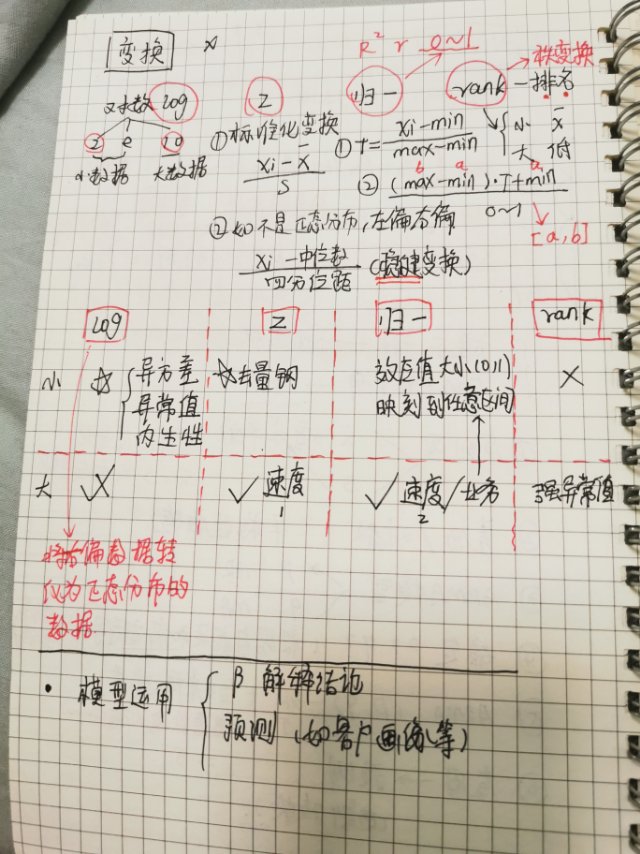 变换 x
R² r 0~1
对数 log
2 e 10
小数据 大数据
Z
①标准化变换
xi-x̄
S
②如不是正态分布,左偏右偏
xi-中位数
四分位距 (稳健变换)
归一
①T=xi-min
max-min
b a a
②(max-min)·T+min
0~1
[a,b]
rank-排名
秩变换
小 x̄
大 低
log Z 归一 rank
小 ☆ 异方差
异常值
内生性
☆去量钢
效应值大小(0,1)
映刻到任意区间
X
大 X
✓ 速度
1
✓ 速度/业务
2
强异常值
偏态数据转
仅为正态分布的
数据
• 模型运用
β 解释结论
预测(如客户画像等)